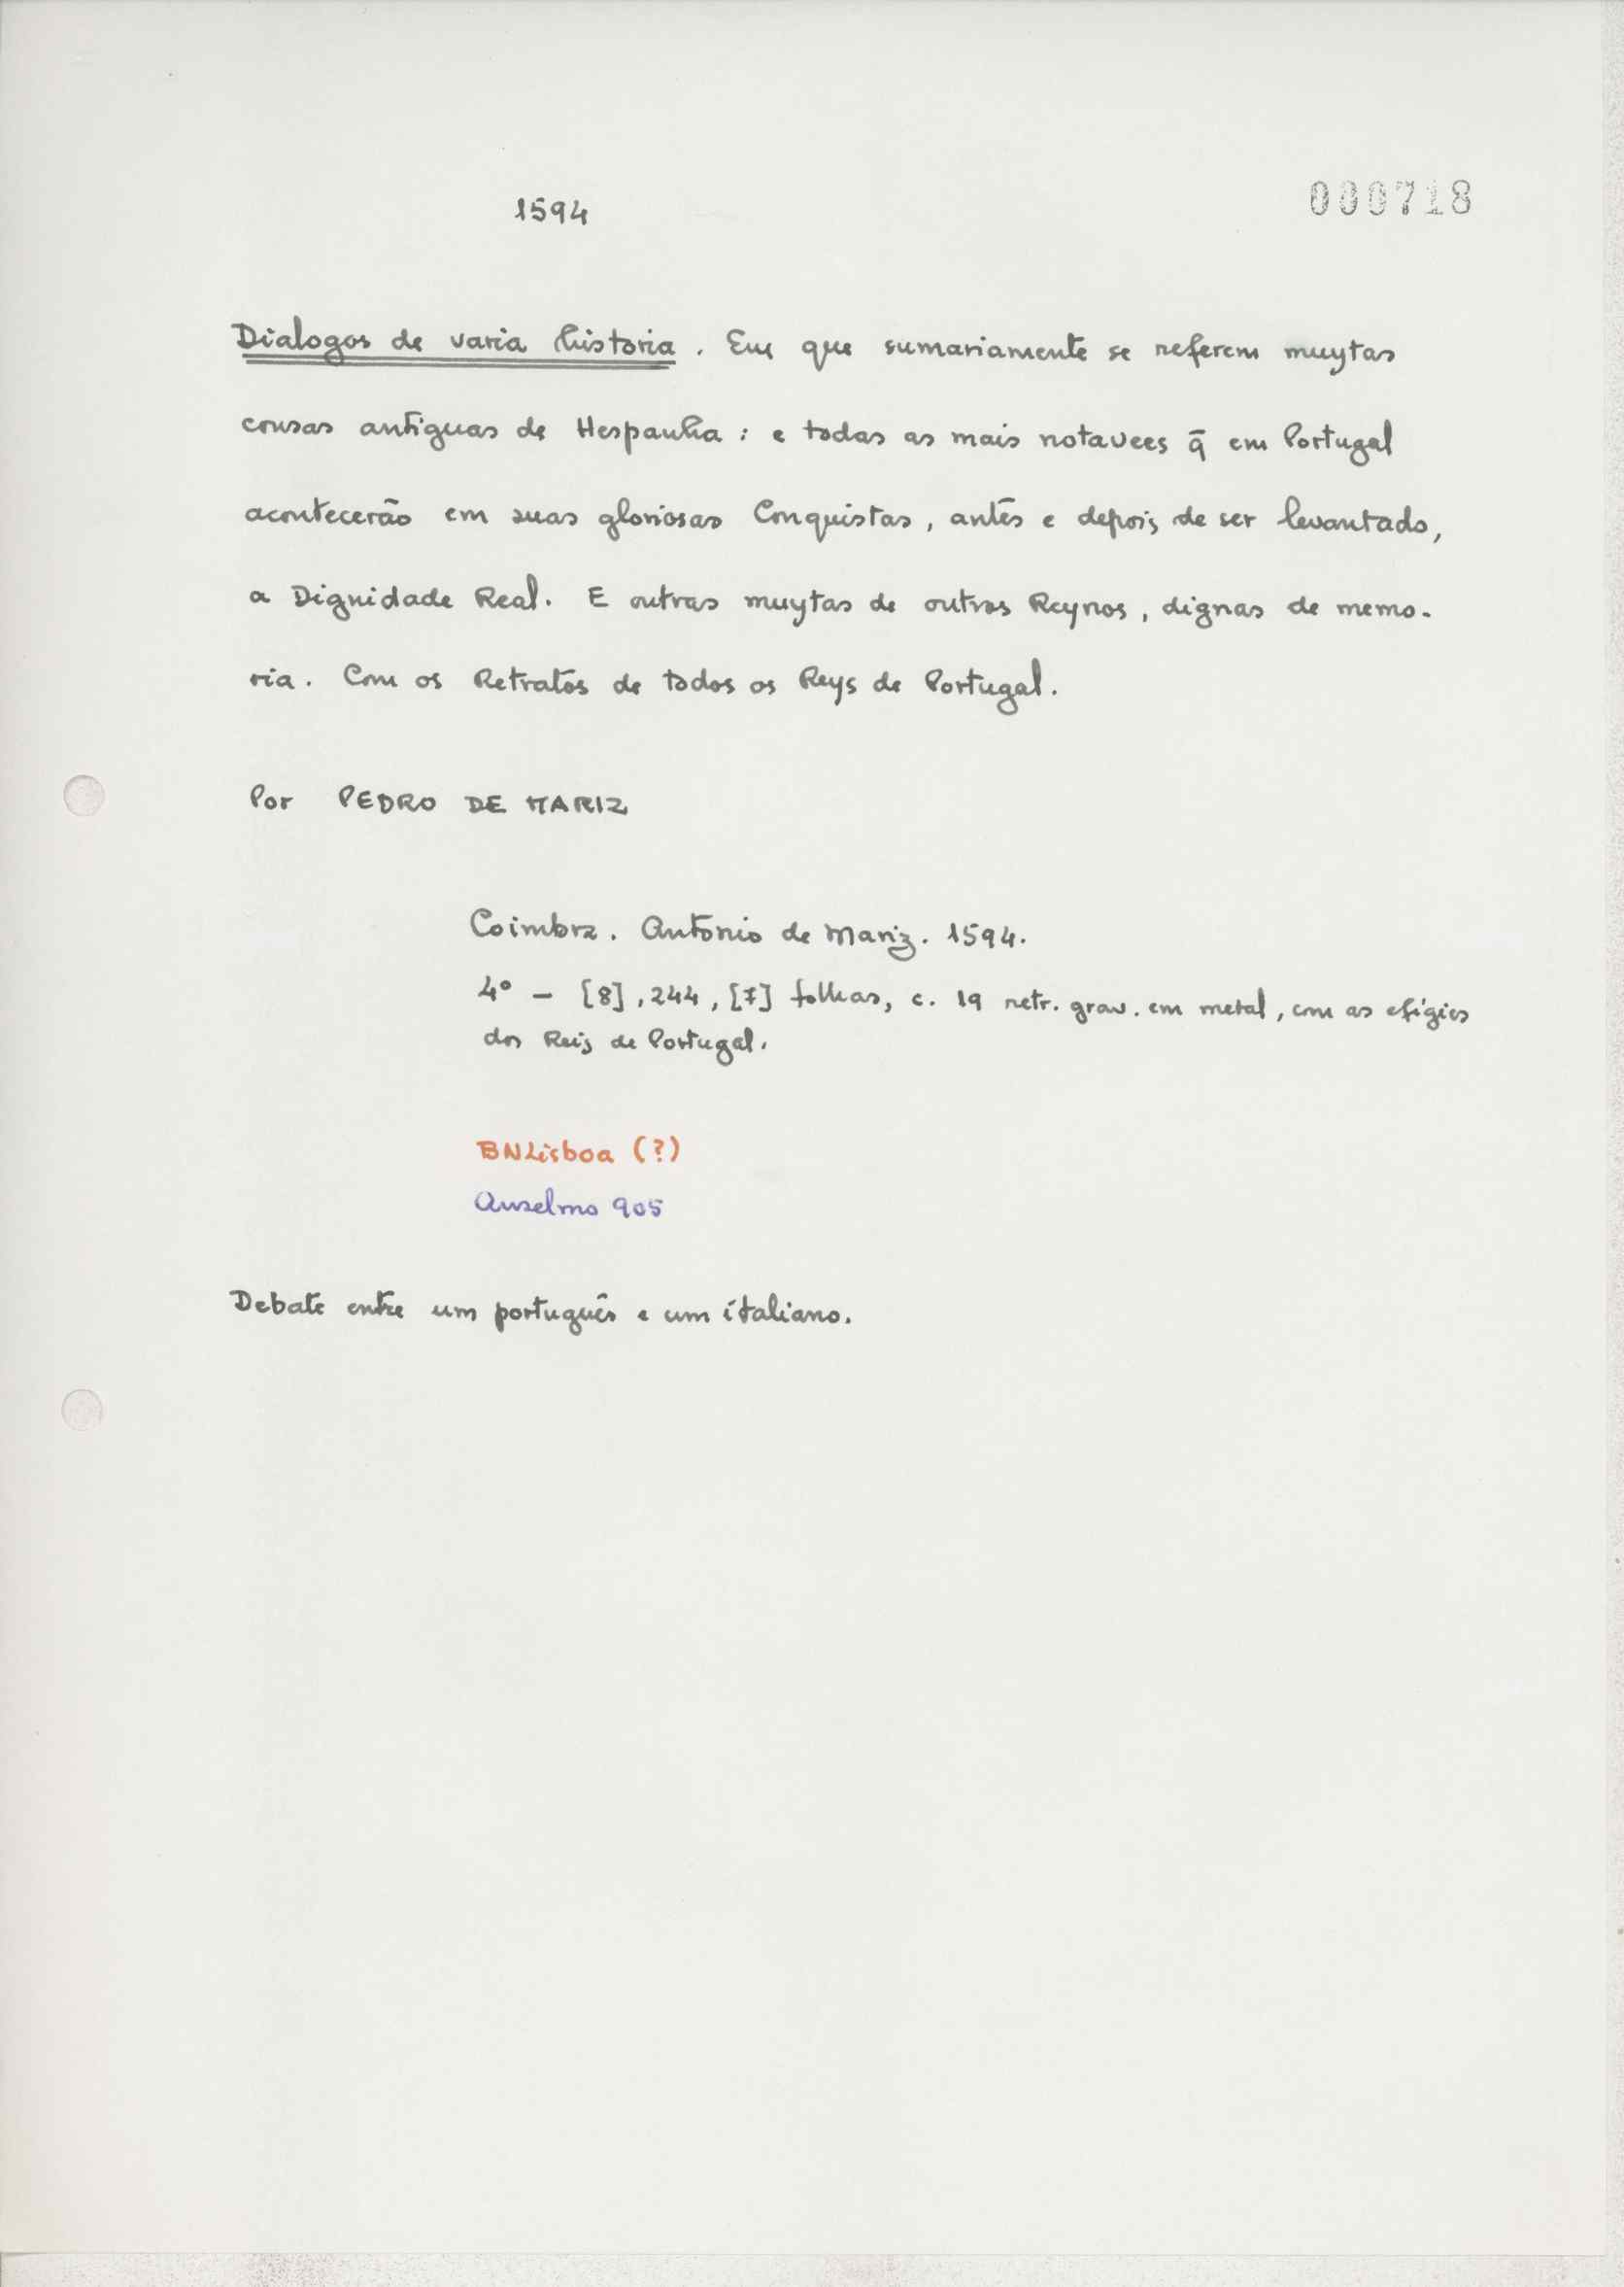 1594
000718
Dialogos de varia historia. Em que sumariamente se referem muytas
cousas antiguas de Hespanha: e todas as mais notavees q̄ em Portugal
acontecerão em suas gloriosas Conquistas, antes e depois de ser levantado,
a Dignidade Real. E outras muytas de outros Reynos, dignas de memo-
ria. Com os Retratos de todos os Reys de Portugal.
Por PEDRO DE MARIZ
Coimbra. Antonio de Mariz. 1594.
4º - [8], 244, [7] folhas, c. 19 retr. grav. em metal, com as efígies
dos Reis de Portugal.
BNLisboa (?)
Anselmo 905
Debate entre um português e um italiano.